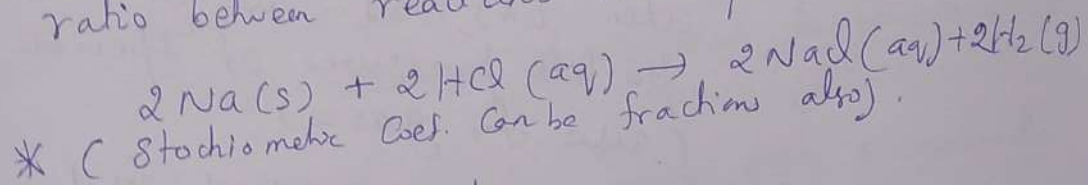 ratio between
2Na(s) + 2HCl (aq) → 2NaCl(aq)+2H₂(g)
* ( Stochiometric Coef. Can be fractions also).